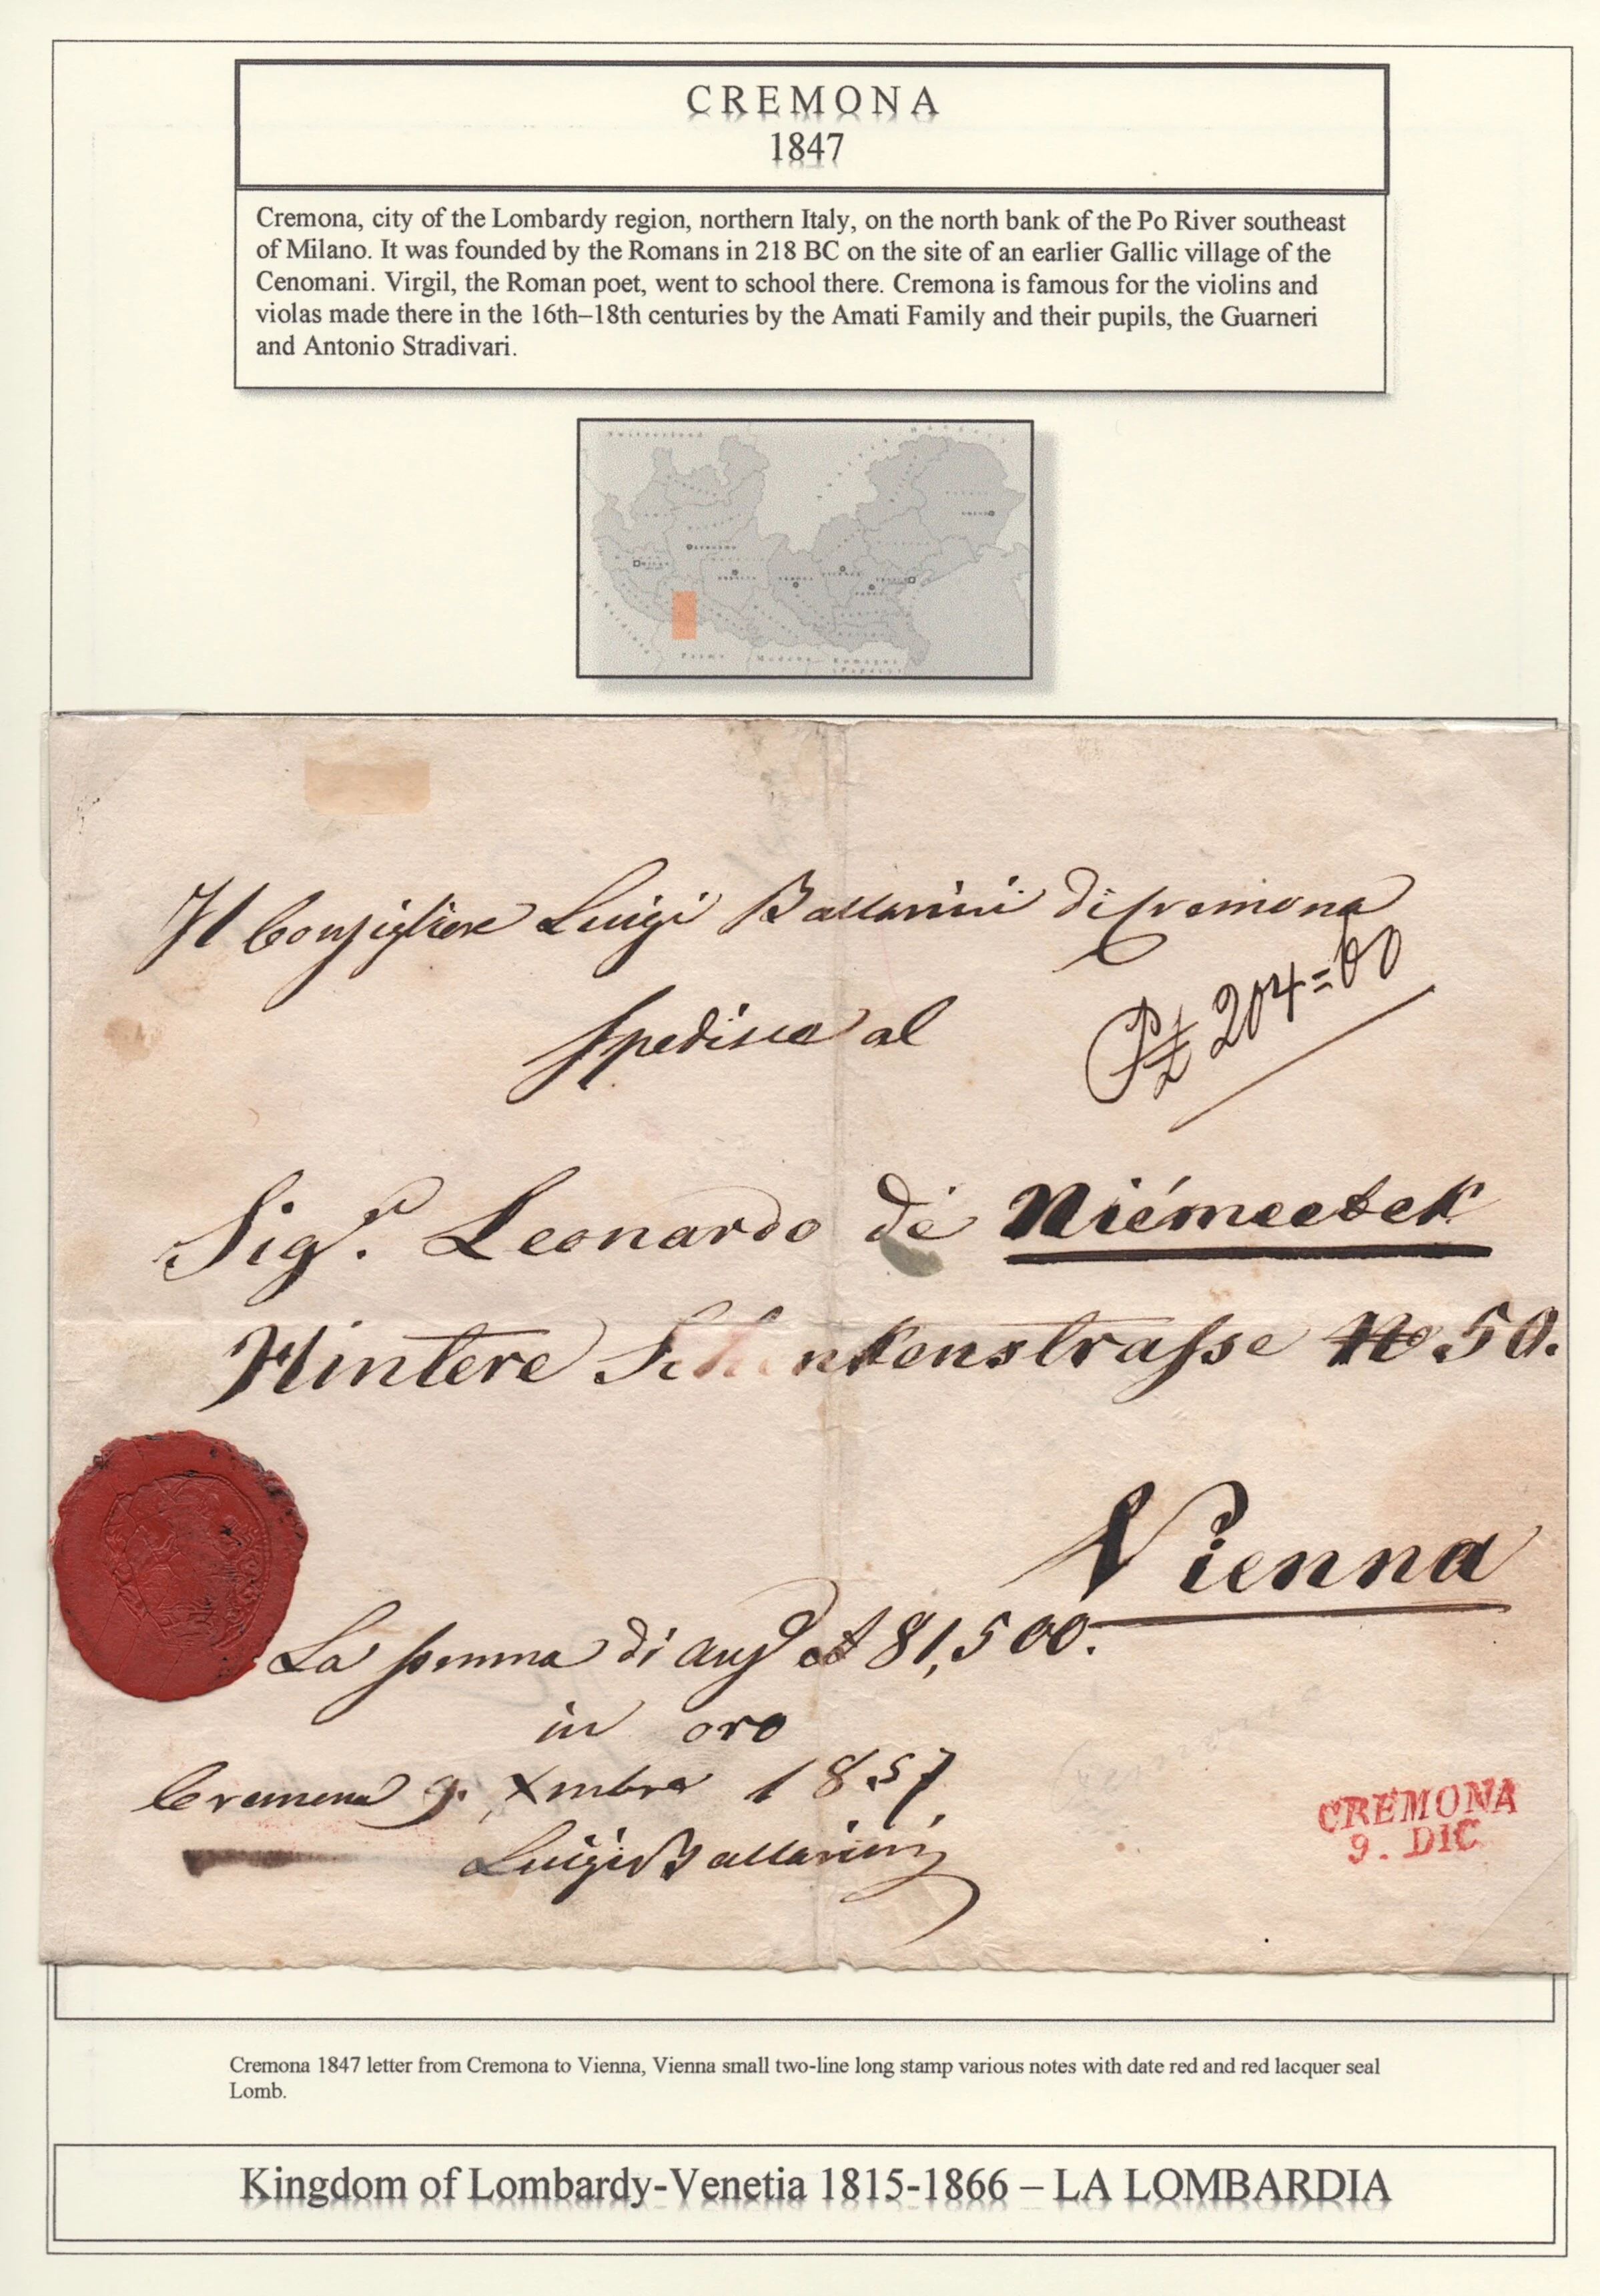 CREMONA
1847
Cremona, city of the Lombardy region, northern Italy, on the north bank of the Po River southeast
of Milano. It was founded by the Romans in 218 BC on the site of an earlier Gallic village of the
Cenomani. Virgil, the Roman poet, went to school there. Cremona is famous for the violins and
violas made there in the 16th–18th centuries by the Amati Family and their pupils, the Guarneri
and Antonio Stradivari.
Switzerland
Parma Modena Romagna
(Papacy)
Il Consigliere Luigi Ballarini di Cremona
204=60
spedisce al
Sigr. Leonardo de
Hintere Schenkenstrasse No 50.
Vienna
La somma di 81,500.
in oro
Cremona 9. Xmbre 1857.
Luigi Ballarini
CREMONA
9. DIC
Cremona 1847 letter from Cremona to Vienna, Vienna small two-line long stamp various notes with date red and red lacquer seal
Lomb.
Kingdom of Lombardy-Venetia 1815-1866 – LA LOMBARDIA